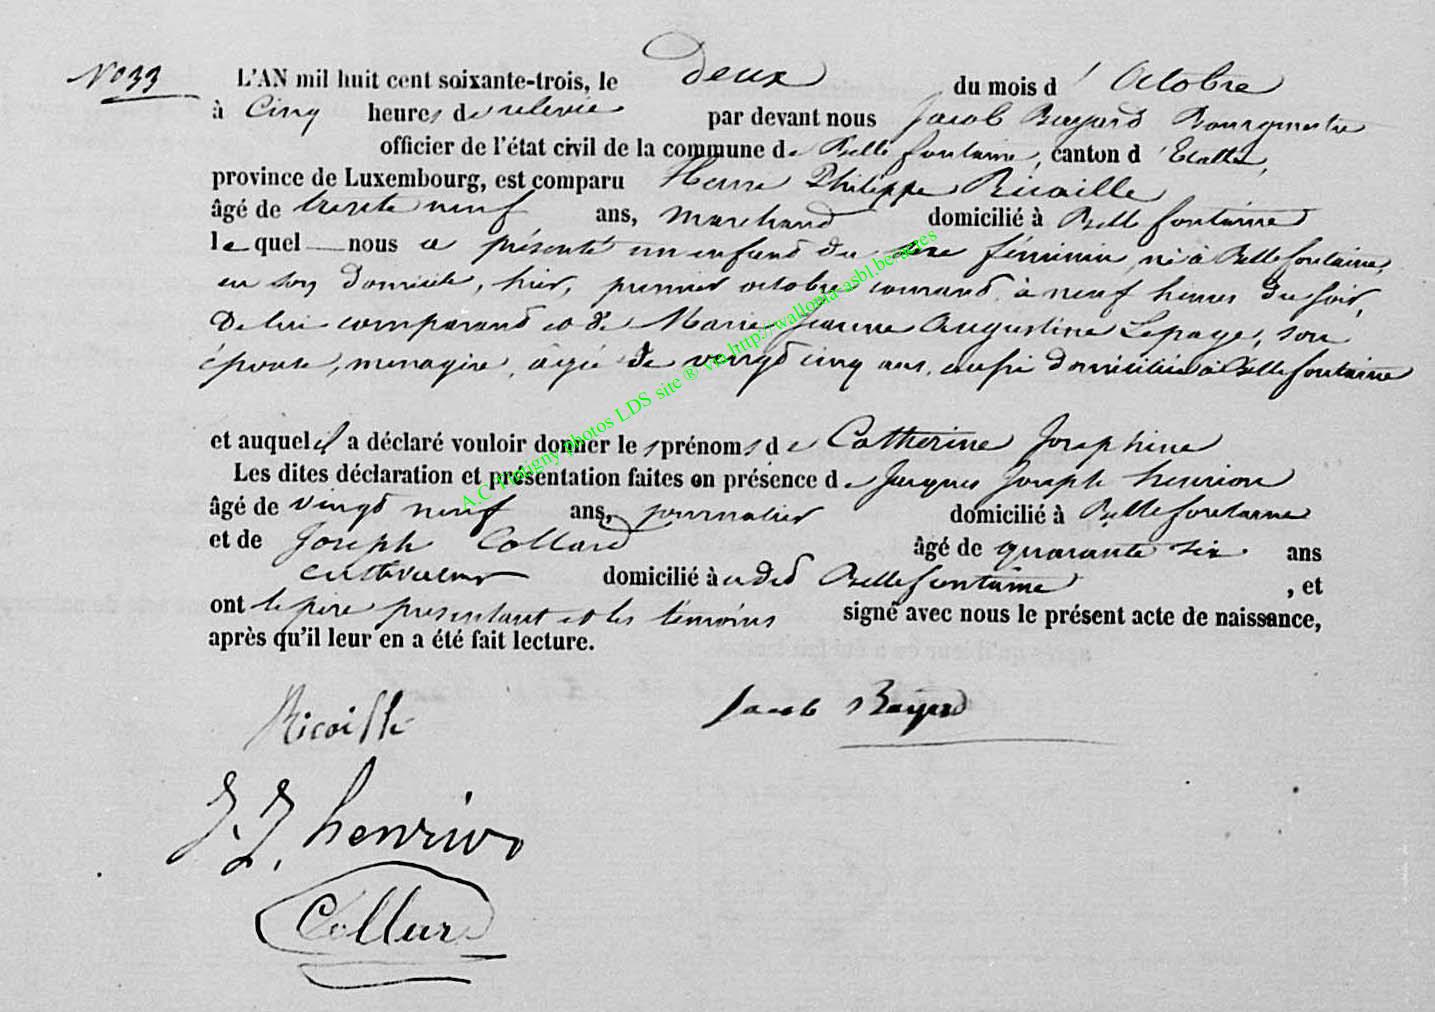 N° 33
L'AN mil huit cent soixante-trois, le deux du mois d'Octobre
à Cinq heures de relevée par devant nous Jacob Bayard Bourgmestre
officier de l'état civil de la commune de Bellefontaine, canton d'Etalle,
province de Luxembourg, est comparu Henri Philippe Ricaille
âgé de trente neuf ans, marchand domicilié à Bellefontaine
lequel nous a présenté un enfant du sexe féminin, né à Bellefontaine,
en son domicile, hier, premier octobre courant, à neuf heures du soir,
de lui comparant et de Marie Jeanne Augustine Lepage, son
épouse, menagère, agée de vingt cinq ans, aussi domiciliée à Bellefontaine
et auquel il a déclaré vouloir donner les prénoms de Catherine Josephine
Les dites déclaration et présentation faites en présence de Jacques Joseph henrion
âgé de vingt neuf ans, journalier domicilié à Bellefontaine
et de Joseph Collard âgé de quarante six ans
cultivateur domicilié à udit Bellefontaine, et
ont le père présentant et les témoins signé avec nous le présent acte de naissance,
après qu'il leur en a été fait lecture.
Ricaille
Jacob Bayard
J. J. henrion
Collard
A.C. Tintigny photos LDS site ® via http://wallonia-asbl.be/actes